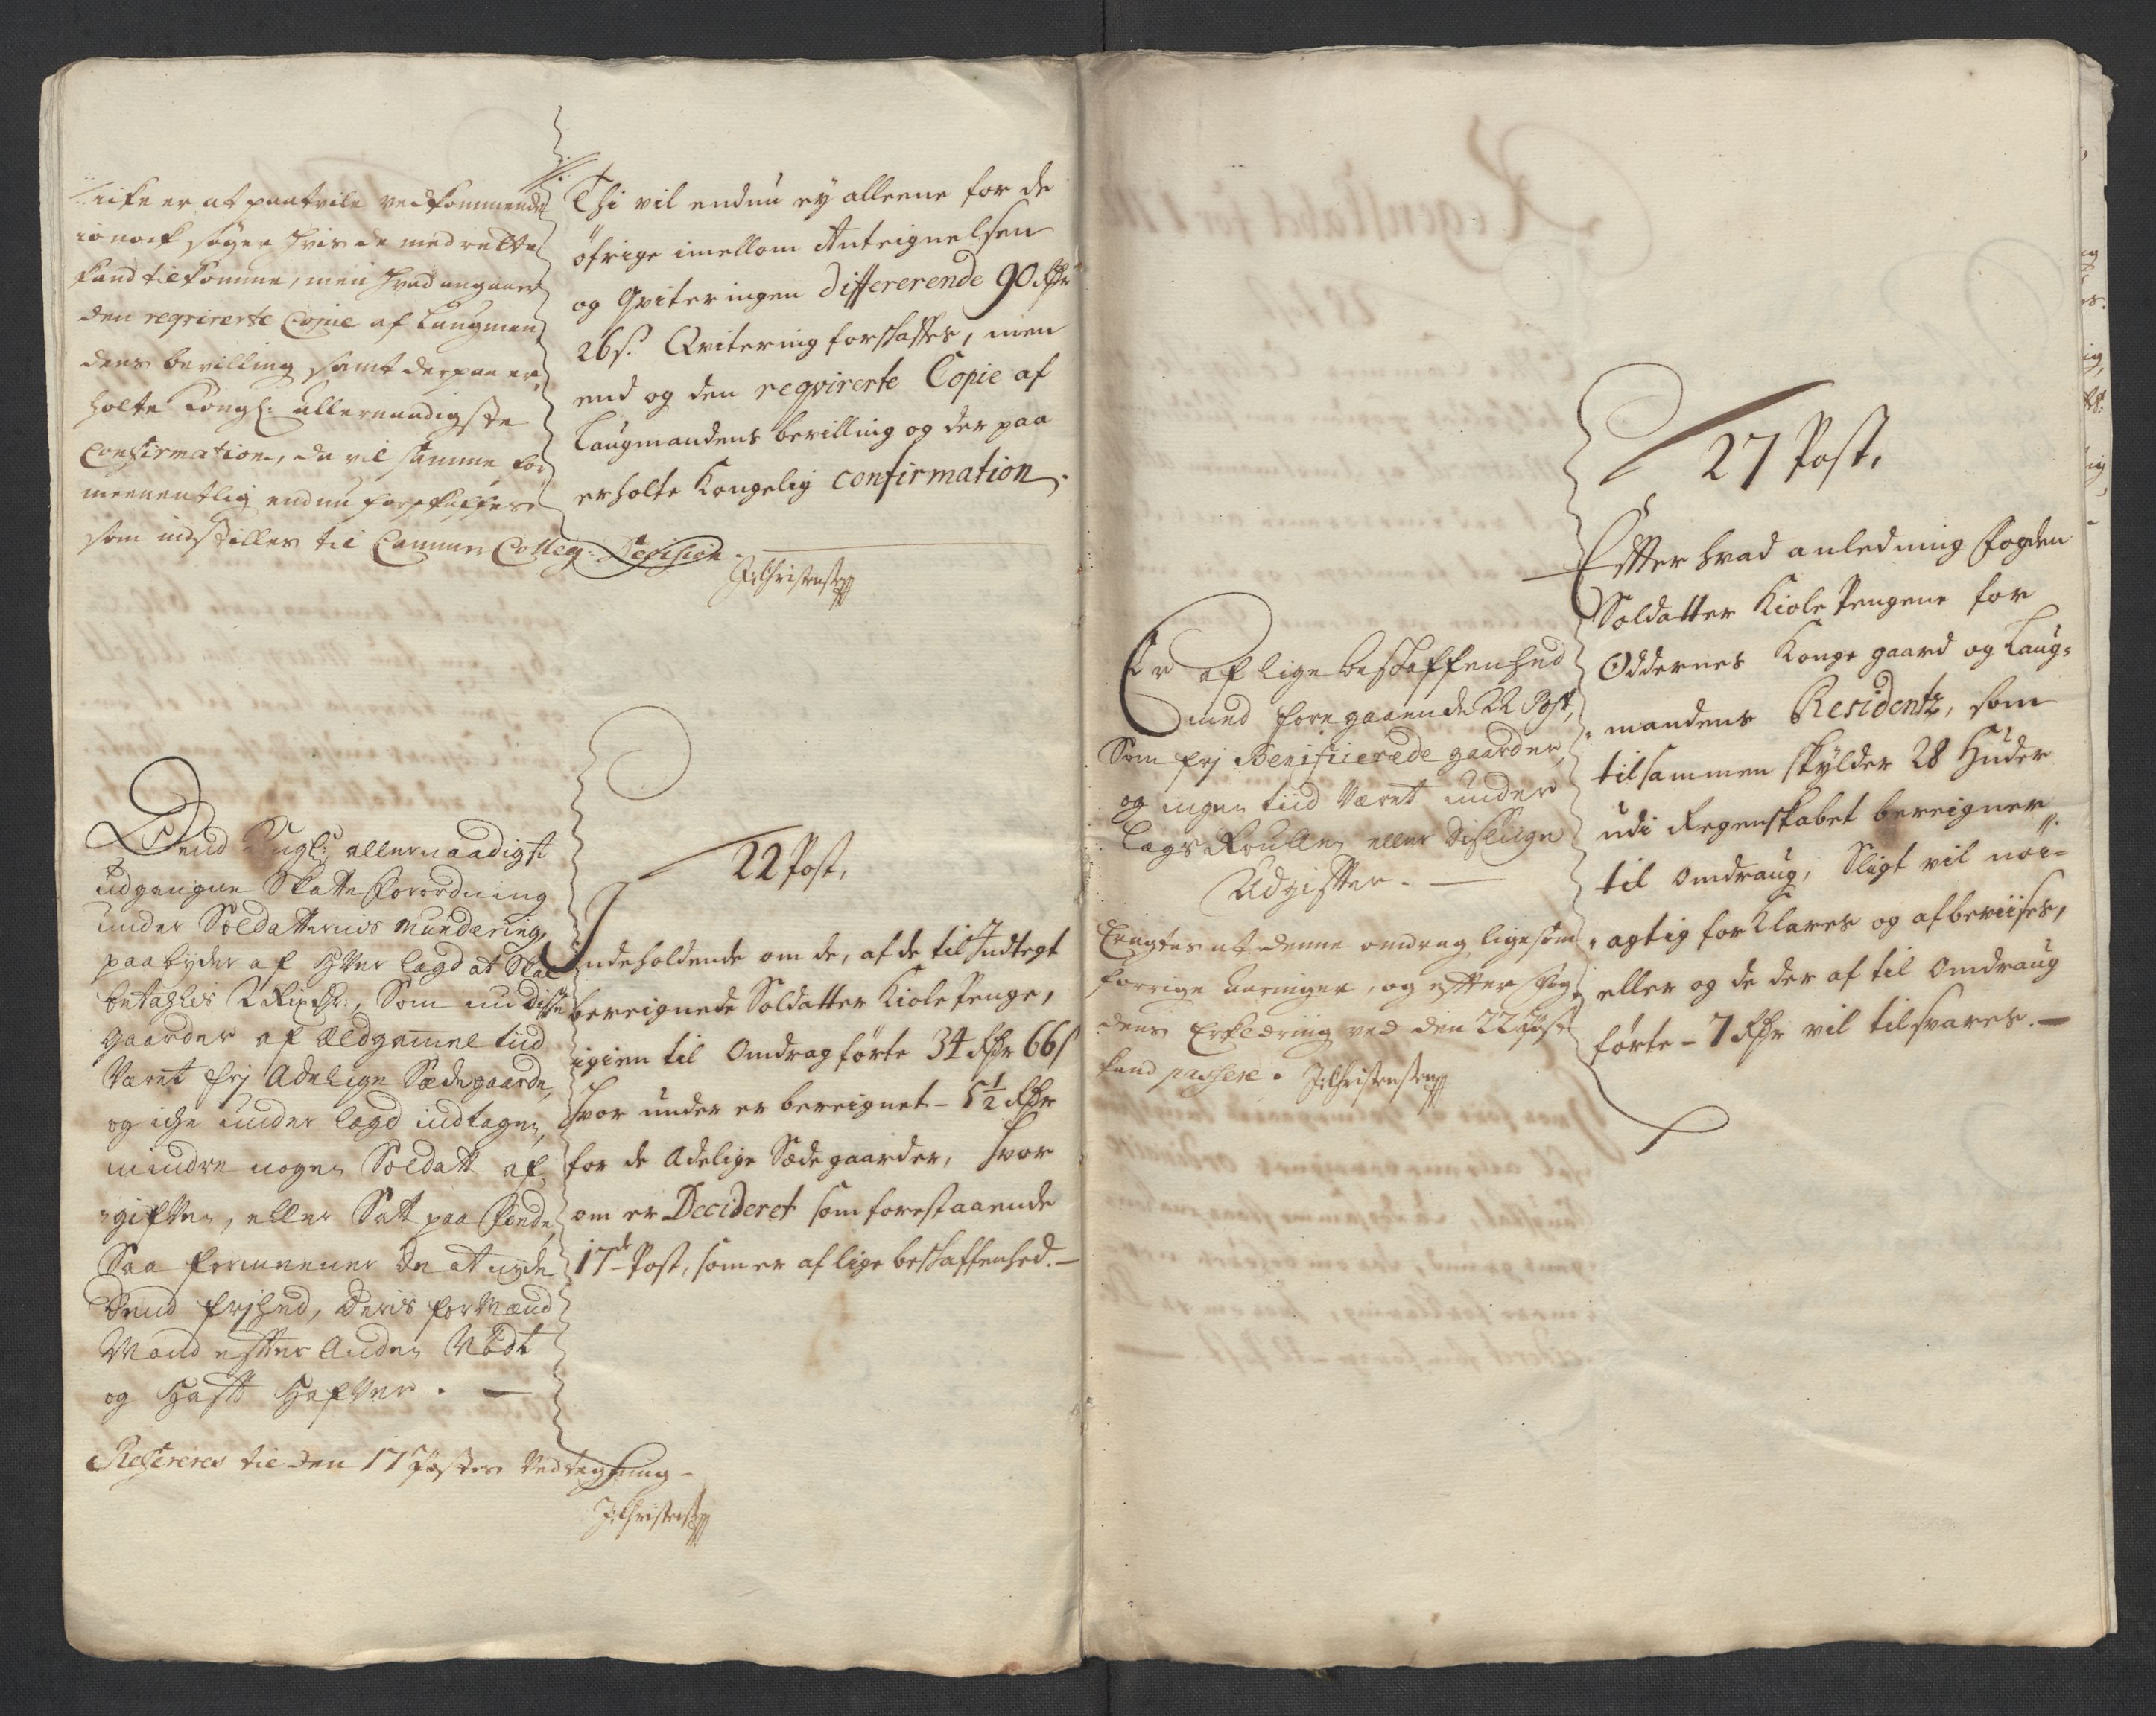 icke er at paatvile vedkommende
io nock søger hvis de med rette
kand tilkomme, men hvad angaaer
den reqvirerte Copie af Laugman
dens bevilling samt derpaa er,
holte Kongl: allernaadigste
Confirmation, da vil samme for
meenentlig endnu forskaffes
som indstilles til Cammer Colleg: Decision.
JChristensen
Thi vil endnu ey alleene for de
øfrige imellom Anteignelsen
og Qviteringen differerende 90 Rdr
26 s. Qvitering forskaffes, men
end og den reqvirerte Copie af
Laugmandens bevilling og der paa
erholte Kongelig confirmation.
Dend Kngl: allernaadigst
udgangne Skatte Forordning
under Soldatternis Mundering,
paabyder af Hver lægd at Skal
betahlis 2 Rixdr:, Som nu disse
gaarder af Ældgammel tiid
Været frj Adelige Sædegaarde,
og iche under lægd indtagen,
mindre nogen Soldatt af,
"giften, eller Satt paa Fode,
Saa formeener de at nyde
dend frjhed, deris forMænd
Mand efter Anden Nødt
og Hafft Hafver. —
Refereres til den 17 Postes Vedtegning -
JChristensen
22 Post,
Indeholdende om de, af de til Indtegt
bereignede Soldatter Kiole Penge,
igien til Omdrag førte 34 Rdr 66 s
hvor under er bereignet - 5 1/2 Rdr
for de Adelige Sæde gaarder, hvor
om er Decideret som forestaaende
17de Post, som er af lige beskaffenhed. —
Er af lige beskaffenhed
med foregaaende 22 Post,
Som frj Benificierede gaarder,
og ingen tiid Været under
Lægs Roullen eller deslige
Udgifter. —
Eragtes at denne omdrag ligesom
forrige Aaringer, og efter Fog,
dens Erklæring ved den 22 Post
kand passere. JChristensen
27 Post,
Efter hvad anledning Fogden
Soldatter Kiole Pengene for
Oddernes Konge gaard og Laug=
"mandens Residentz, som
tilsammen skylder 28 Huder
udi Regenskabet bereigner
til Omdraug, Sligt vil nøi=
"agtig forklares og afbeviises,
eller og de der af til Omdraug
førte - 7 Rdr vil tilsvares. —